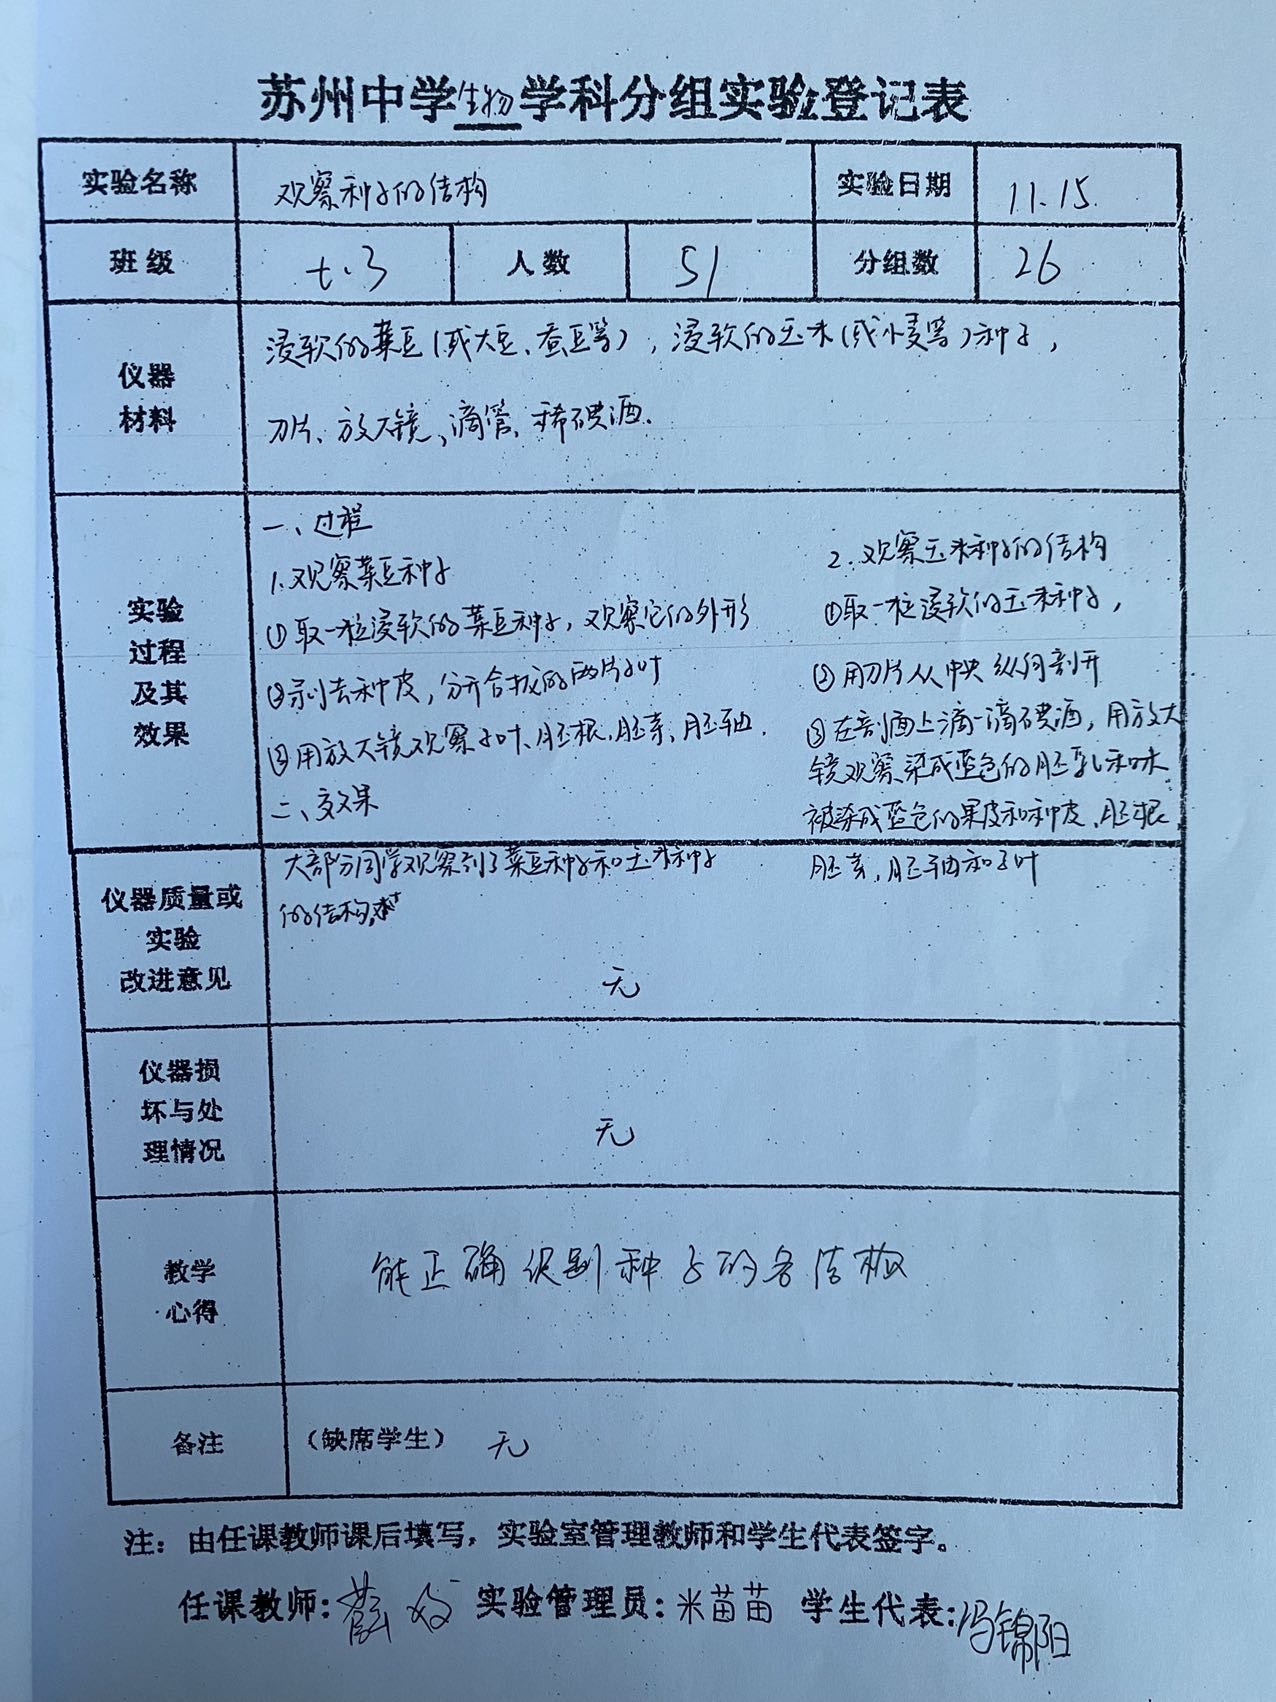 苏州中学生物学科分组实验登记表
实验名称 观察种子的结构 实验日期 11.15
班级 七.3 人数 51 分组数 26
仪器
材料
浸软的菜豆(或大豆、蚕豆等),浸软的玉米(或小麦等)种子,
刀片、放大镜、滴管、稀碘酒.
实验
过程
及其
效果
一、过程
1.观察菜豆种子
①取一粒浸软的菜豆种子,观察它的外形
②剥去种皮,分开合拢的两片子叶
③用放大镜观察子叶、胚根、胚芽、胚轴.
二、效果
大部分同学观察到了菜豆种子和玉米种子
的结构,
2.观察玉米种子的结构
①取一粒浸软的玉米种子,
②用刀片从中央纵向剖开
③在剖面上滴一滴碘酒,用放大
镜观察染成蓝色的胚乳和未
被染成蓝色的果皮和种皮、胚根、
胚芽,胚轴和子叶
仪器质量或
实验
改进意见
无
仪器损
坏与处
理情况
无
教学
心得
能正确识别种子的各结构
备注 (缺席学生) 无
注:由任课教师课后填写,实验室管理教师和学生代表签字。
任课教师: 实验管理员:米苗苗 学生代表:冯锦阳